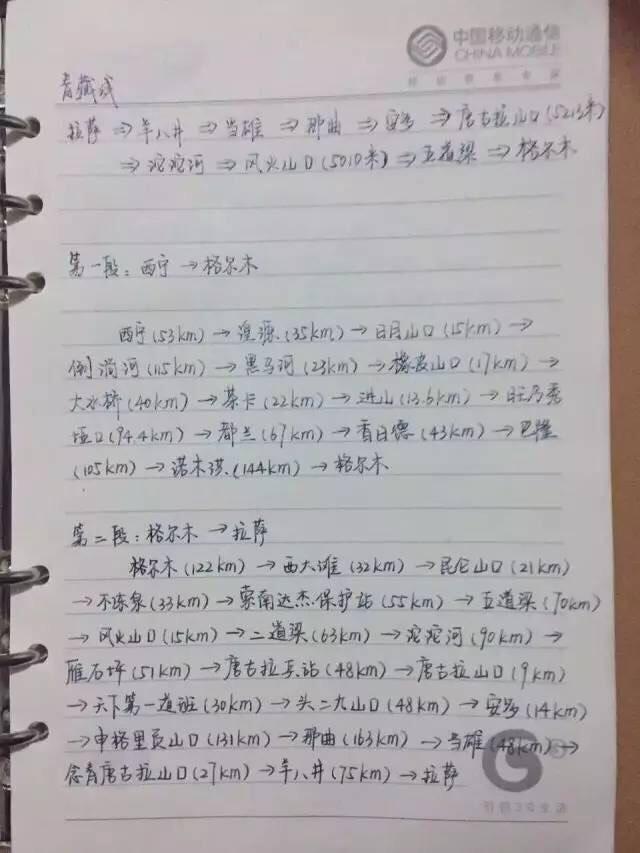 中国移动通信
CHINA MOBILE
青藏线
拉萨⇒羊八井⇒当雄⇒那曲⇒安多⇒唐古拉山口(5213米)
⇒沱沱河⇒风火山口(5010米)⇒五道梁⇒格尔木
第一段：西宁→格尔木
西宁(53km)→湟源(35km)→日月山口(15km)→
倒淌河(115km)→黑马河(23km)→橡皮山口(17km)→
大水桥(40km)→茶卡(22km)→进山(13.6km)→旺尕秀
垭口(94.4km)→都兰(67km)→香日德(43km)→巴隆
(105km)→诺木洪(144km)→格尔木
第二段：格尔木→拉萨
格尔木(122km)→西大滩(32km)→昆仑山口(21km)
→不冻泉(33km)→索南达杰保护站(55km)→五道梁(70km)
→风火山口(15km)→二道梁(63km)→沱沱河(90km)→
雁石坪(51km)→唐古拉兵站(48km)→唐古拉山口(9km)
→天下第一道班(30km)→头二九山口(48km)→安多(14km)
→申格里贡山口(131km)→那曲(163km)→当雄(48km)→
念青唐古拉山口(27km)→羊八井(75km)→拉萨